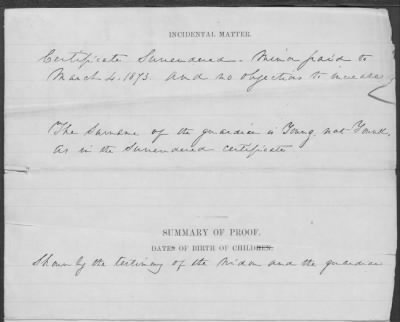 INCIDENTAL MATTER.
Certificate Surrendered. Minor paid to
March 4. 1873. and no objections to increase
The Surname of the guardian is Young, not
as in the Surrendered certificate
SUMMARY OF PROOF.
DATES OF BIRTH OF CHILDREN.
Shown by the testimony of the Widow and the guardian